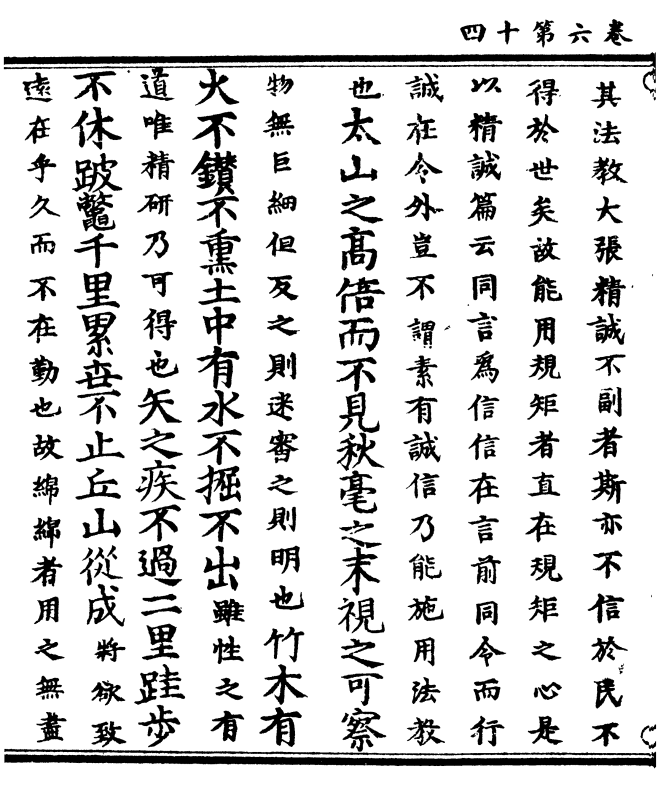 卷六第十四
其法教大張精誠不副者斯亦不信於民不
得於世矣故能用規矩者直在規矩之心是
以精誠篇云同言為信信在言前同令而行
誠在令外豈不謂素有誠信乃能施用法教
也太山之高倍而不見秋毫之末視之可察
物無巨細但反之則迷審之則明也竹木有
火不鑽不熏土中有水不掘不出雖性之有
道唯精研乃可得也矢之疾不過二里跬步
不休跛鼈千里累𡊄不止丘山從成將欲致
遠在乎久而不在勤也故綿綿者用之無盡